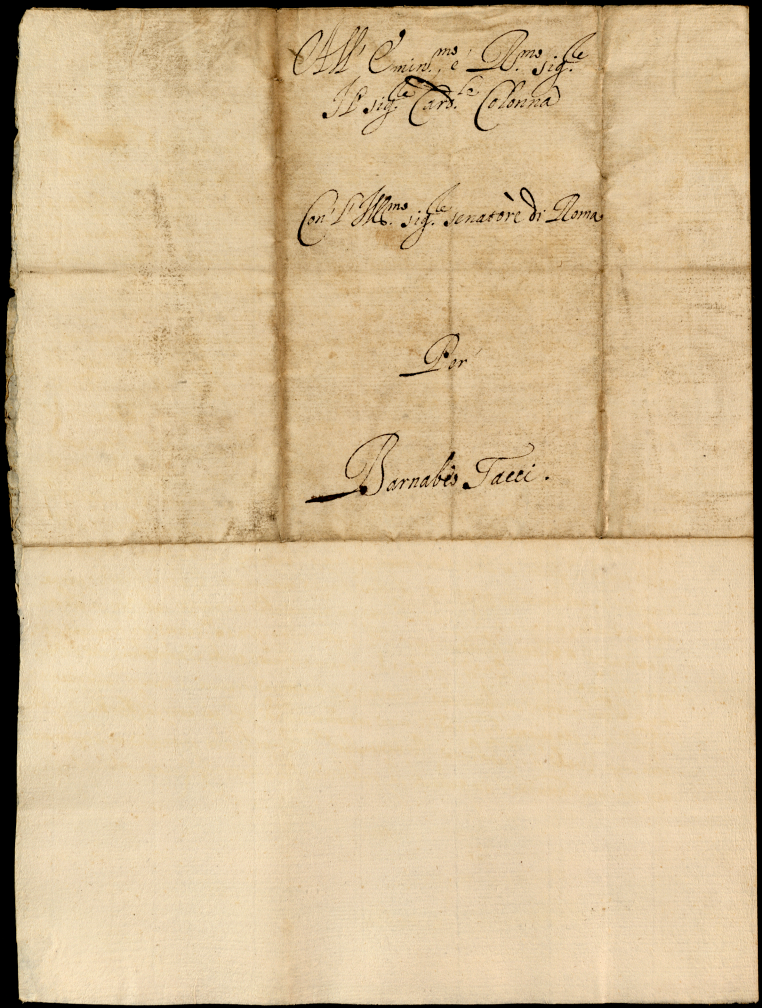 All' Emin.mo e R.mo sig.re
Il sig.re Card.le Colonna
Con l'Ill.mo sig.re senatore di Roma
Per
Barnabeo Tacci.